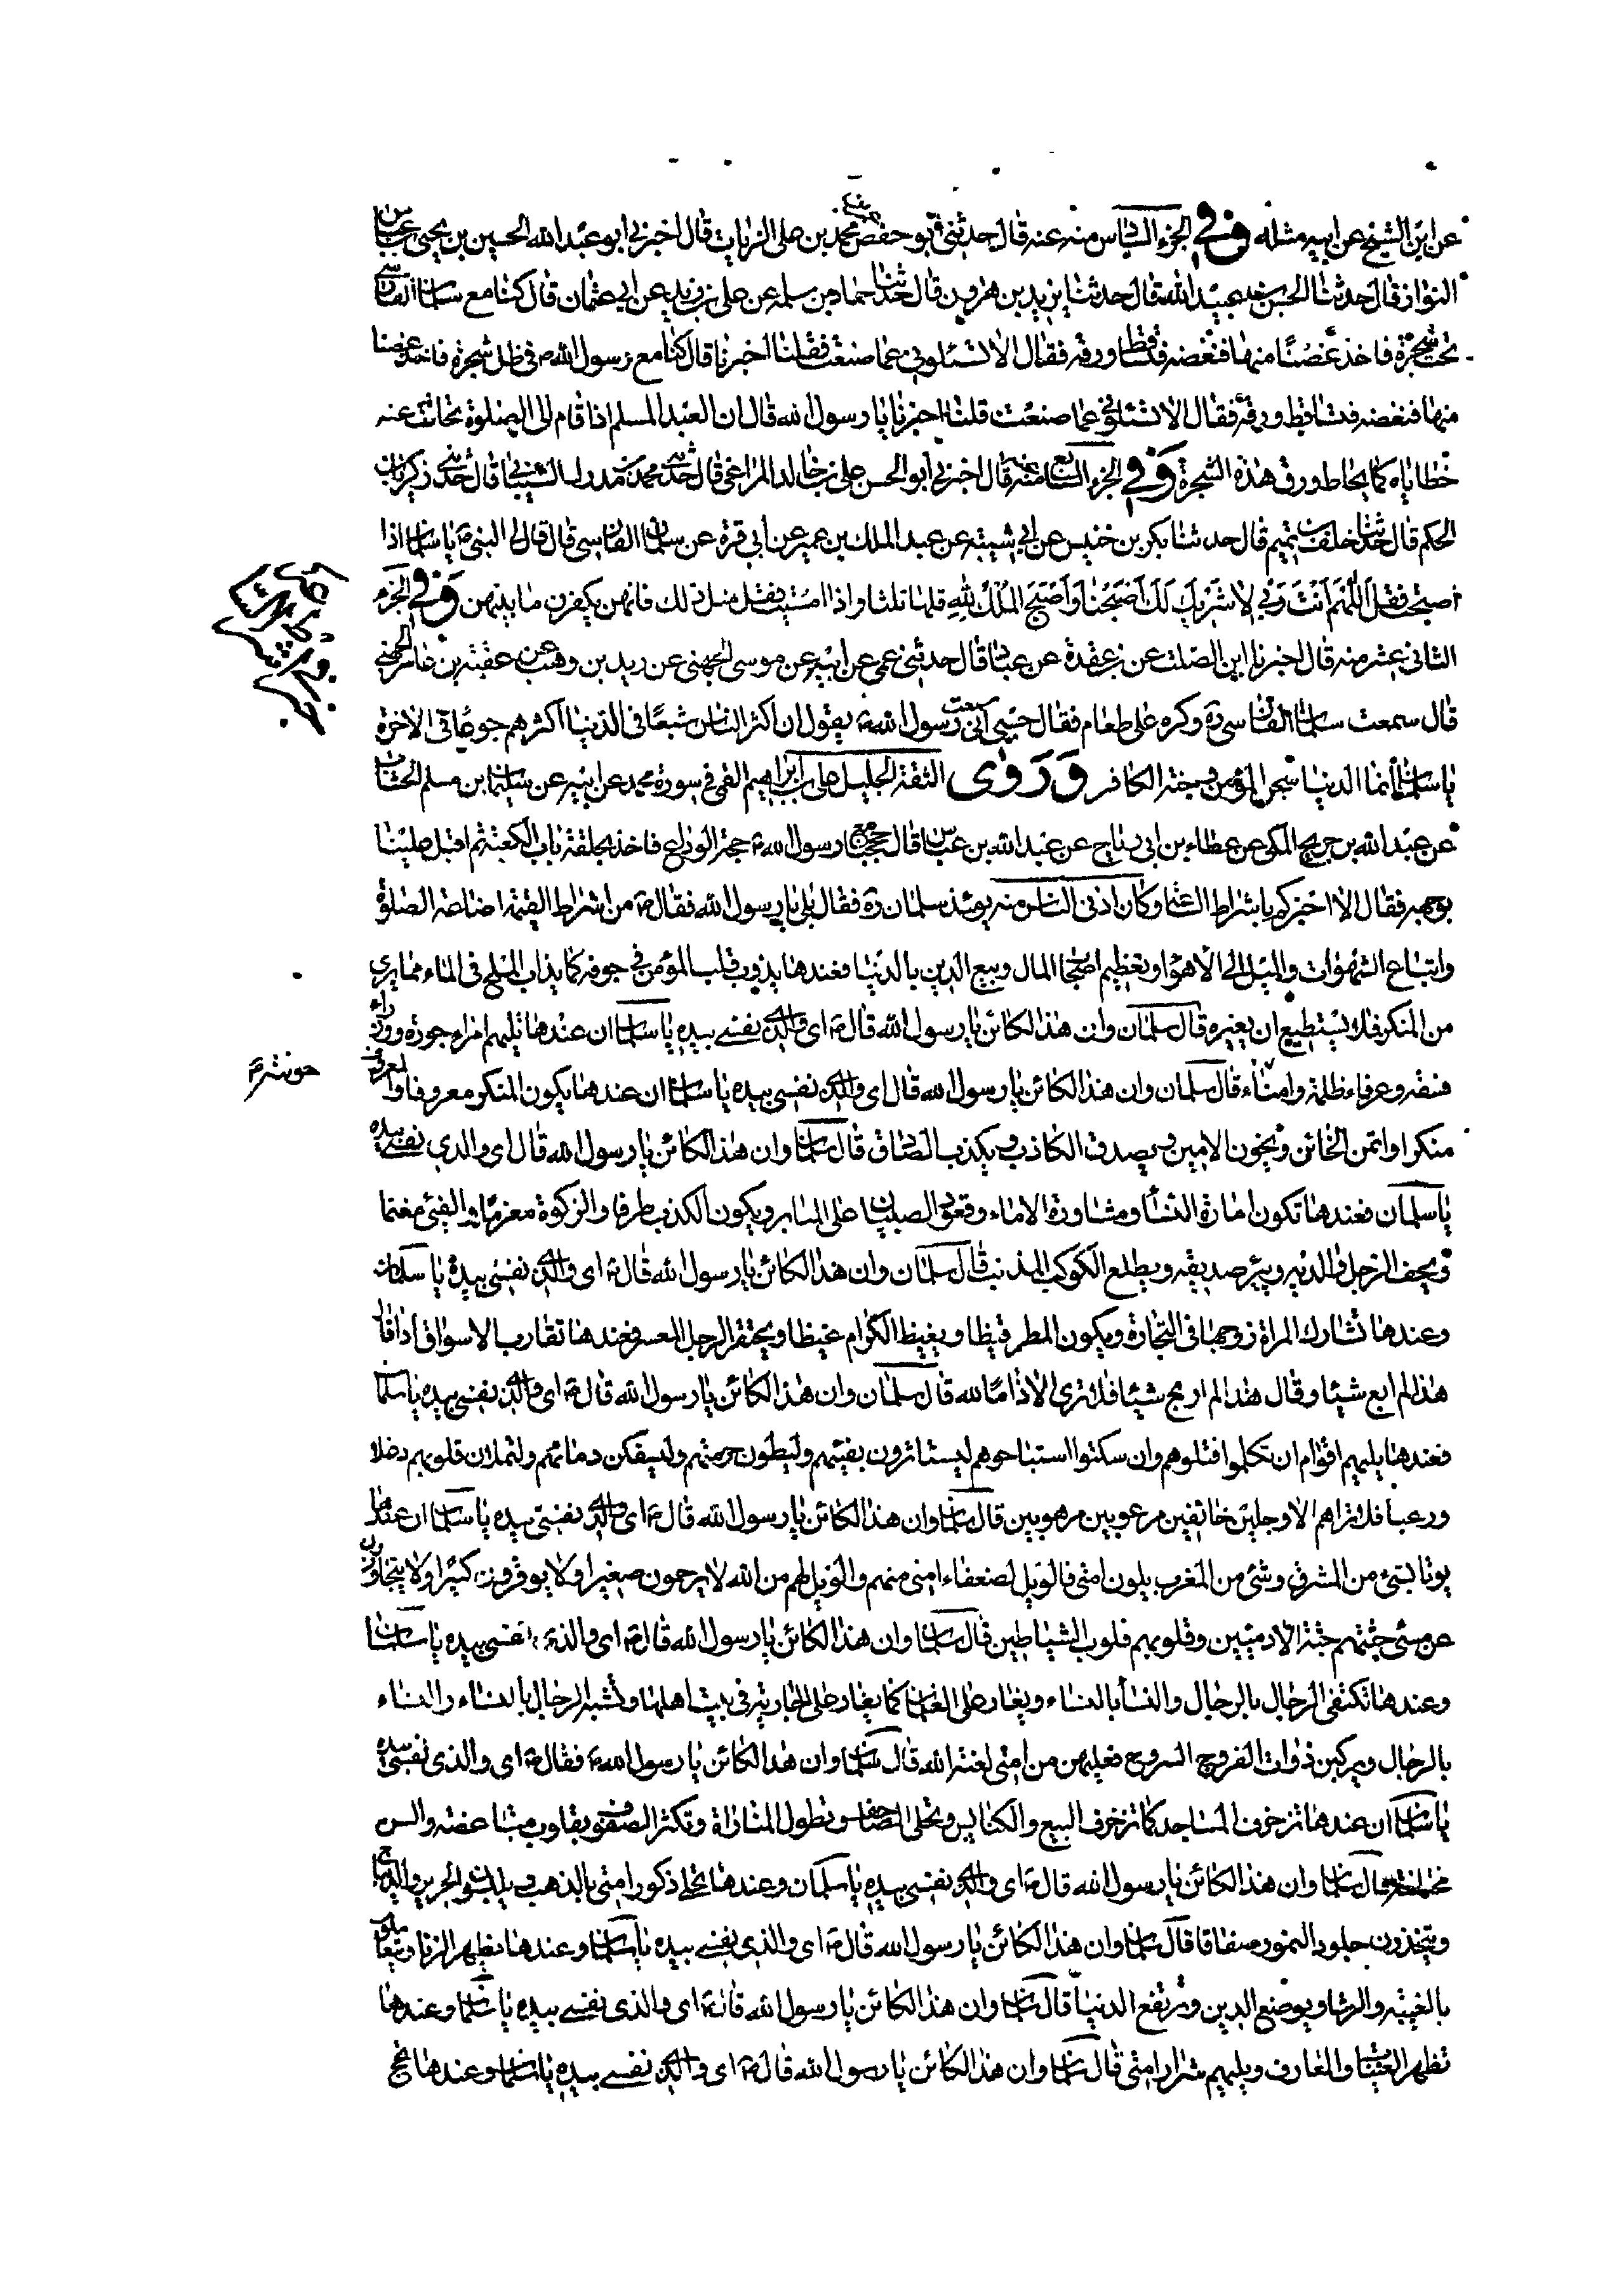 عن ابن الشيخ عن ابيه مثله وفي الجزء السادس منه عنه قال حدثني ابو حفص محمد بن علي الزيات قال اخبرني ابو عبد الله الحسين بن يحيى بن عباس
قال حدثنا الحسن بن عبيد الله قال حدثنا يزيد بن هرون قال حدثنا حماد بن سلمه عن علي بن زيد عن ابي عثمان قال كنا مع سلمان الفارسي
تحت شجرة فاخذ غصنًا منها فنفضه فتساقط ورقه فقال الا تسئلوني عما صنعت فقلنا اخبرنا قال كنا مع رسول الله ص في ظل شجرة فاخذ غصنا
منها فنفضه فتساقط ورقه فقال الا تسئلوني عما صنعت قلنا اخبرنا يا رسول الله قال ان العبد المسلم اذا قام الى الصلوة تحاتت عنه
خطاياه كما تحاط ورق هذه الشجرة وفي الجزء السابع منه عنه قال اخبرني ابو الحسن علي بن خالد المراغي قال حدثني محمد بن الشيباني قال حدثني زكريا بن
الحكم قال حدثنا خلف بن تميم قال حدثنا بكر بن خنيس عن ابي شيبه عن عبد الملك بن عمير عن ابي قرة عن سلمان الفارسي قال قال لي النبي ص يا سلمان اذا
اصبحت فقل اللّهم انت ربي لا شريك لك اصبحنا واصبح الملك لله قلها ثلثا واذا امسيت فقل مثل ذلك فانهن يكفرن ما بينهن وفي الجزء
الثاني عشر منه قال اخبرنا ابن الصلت عن بن عقدة عن عباد قال حدثني عمي عن ابيه عن موسى الجهني عن زيد بن وهب عن عقبة بن عامر الجهني
قال سمعت سلمان الفارسي ره وكره على طعام فقال حسبي اني سمعت رسول الله ص يقول ان اكثر الناس شبعًا في الدنيا اكثرهم جوعًا في الاخرة
يا سلمان انما الدنيا سجن المؤمن وجنة الكافر وروى الثقة الجليل علي بن ابراهيم القمي في سورة محمد عن ابيه عن سليمان بن مسلم الخشاب
عن عبد الله بن جريح المكي عن عطاء بن ابي رباح عن عبد الله بن عباس قال حججنا مع رسول الله ص حجة الوداع فاخذ بحلقة باب الكعبة ثم اقبل علينا
بوجهه فقال الا اخبركم باشراط الساعة وكان ادنى الناس منه يومئذ سلمان ره فقال بلى يا رسول الله فقال ص من اشراط القيمة اضاعة الصلوة
واتباع الشهوات والميل الى الاهواء وتعظيم اصحاب المال وبيع الدين بالدنيا فعندها يذوب قلب المؤمن في جوفه كما يذاب الملح في الماء مما يرى
من المنكر فلا يستطيع ان يغيره قال سلمان وان هذا لكائن يا رسول الله قال ص اي والذي نفسي بيده يا سلمان ان عندها يليهم امراء جورة ووزراء
فسقه وعرفاء ظلمة وامناء قال سلمان وان هذا لكائن يا رسول الله قال اي والذي نفسي بيده يا سلمان ان عندها يكون المنكر معروفا والمعروف
خونة ثم
منكرا واتمن الخائن ويخون الامين ويصدق الكاذب ويكذب الصادق قال سلمان وان هذا لكائن يا رسول الله قال اي والذي نفسي بيده
يا سلمان فعندها تكون امارة النساء ومشاورة الاماء وقعود الصبيان على المنابر ويكون الكذب طرفا والزكوة مغرمًا والفيئ مغنما
ويجف الرجل والديه ويبر صديقه ويطلع الكوكب المذنب قال سلمان وان هذا لكائن يا رسول الله قال ص اي والذي نفسي بيده يا سلمان
وعندها تشارك المراة زوجها في التجارة ويكون المطر قيظا ويغيظ الكرام غيظا ويحتقر الرجل المعسر فعندها تقارب الاسواق اذا قال
هذا لم ابع شيئا وقال هذا لم اربح شيئا فلا ترى الا ذامًا لله قال سلمان وان هذا لكائن يا رسول الله قال ص اي والذي نفسي بيده يا سلمان
فعندها يليهم اقوام ان تكلموا قتلوهم وان سكتوا استباحوهم ليستاثرون بفيئهم وليطؤن حرمتهم وليسفكن دمائهم ولتملان قلوبهم دغلا
ورعبا فلا تراهم الا وجلين خائفين مرعوبين مرهوبين قال سلمان وان هذا لكائن يا رسول الله قال ص اي والذي نفسي بيده يا سلمان ان عندها
يوتى بشيء من المشرق وشئ من المغرب يلون امتي فالويل لضعفاء امتي منهم والويل لهم من الله لا يرحمون صغيرا ولا يوقرون كبيرا ولا يتجاوزون
عن مسئ جثتهم جثة الادميين وقلوبهم قلوب الشياطين قال سلمان وان هذا لكائن يا رسول الله قال ص اي والذي نفسي بيده يا سلمان
وعندها تكتفى الرجال بالرجال والنساء بالنساء ويغار على الغلمان كما يغار على الجارية في بيت اهلها وتشبه الرجال بالنساء والنساء
بالرجال ويركبن ذوات الفروج السروج فعليهن من امتي لعنة الله قال سلمان وان هذا لكائن يا رسول الله ص فقال ص اي والذي نفسي بيده
يا سلمان ان عندها تزخرف المساجد كما تزخرف البيع والكنايس وتحلى المصاحف وتطول المنارات وتكثر الصفوف بقلوب متباغضة والسن
مختلفة قال سلمان وان هذا لكائن يا رسول الله قال ص اي والذي نفسي بيده يا سلمان وعندها تحلى ذكور امتي بالذهب ويلبسون الحرير والديباج
ويتخذون جلود النمور صفاقا قال سلمان وان هذا لكائن يا رسول الله قال ص اي والذي نفسي بيده يا سلمان وعندها يظهر الزنا ويتعاملون
بالغيبة والرشا ويوضع الدين وترتفع الدنيا قال سلمان وان هذا لكائن يا رسول الله قال ص اي والذي نفسي بيده يا سلمان وعندها
تظهر القينات والمعازف ويليهم شرار امتي قال سلمان وان هذا لكائن يا رسول الله قال ص اي والذي نفسي بيده يا سلمان وعندها تحج